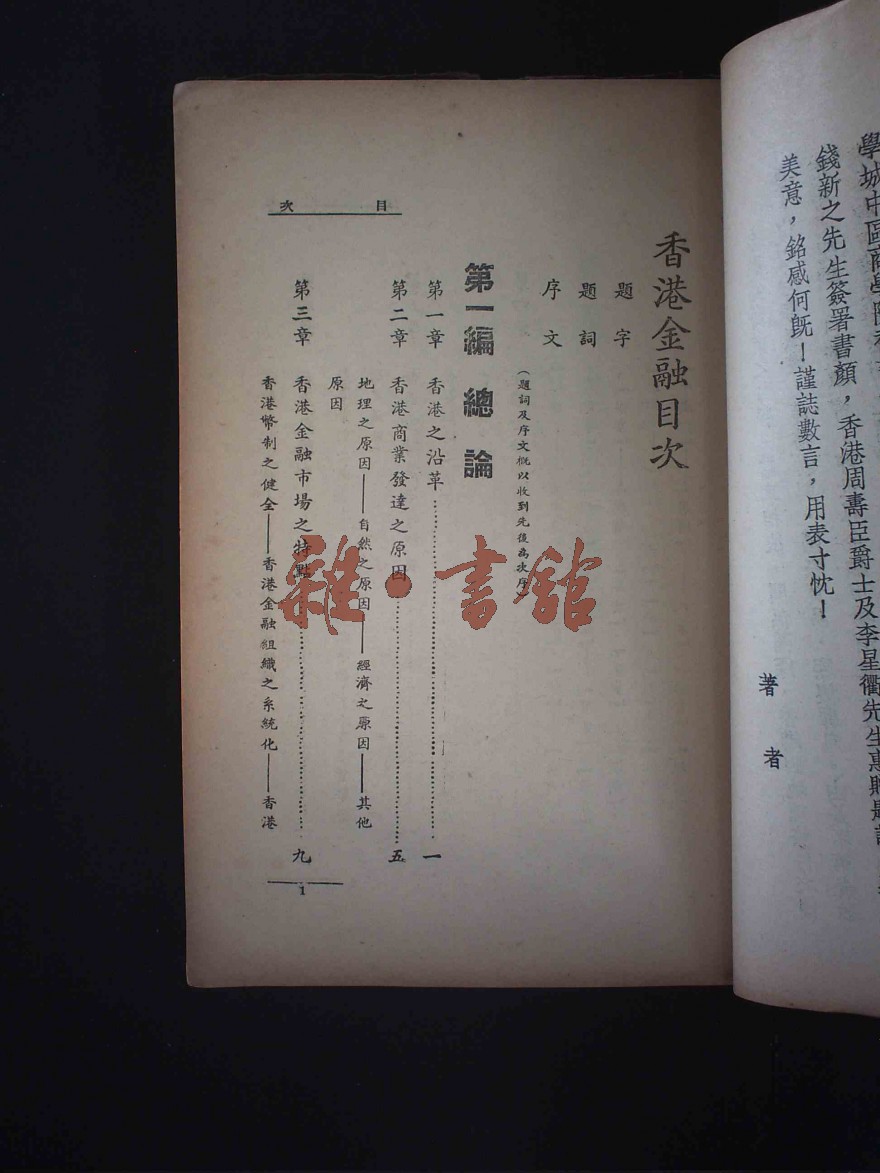 學城中區商學院
錢新之先生簽署書顏，香港周壽臣爵士及李星衢先生惠賜題
美意，銘感何旣！謹誌數言，用表寸忱！
著者
香港金融目次
題字
題詞
序文
（題詞及序文概以收到先後為次序）
第一編 總論
第一章 香港之沿革…………一
第二章 香港商業發達之原因…………五
地理之原因——自然之原因——經濟之原因——其他
原因
第三章 香港金融市場之特點…………九
香港幣制之健全——香港金融組織之系統化——香港
目次
1
雜·書館